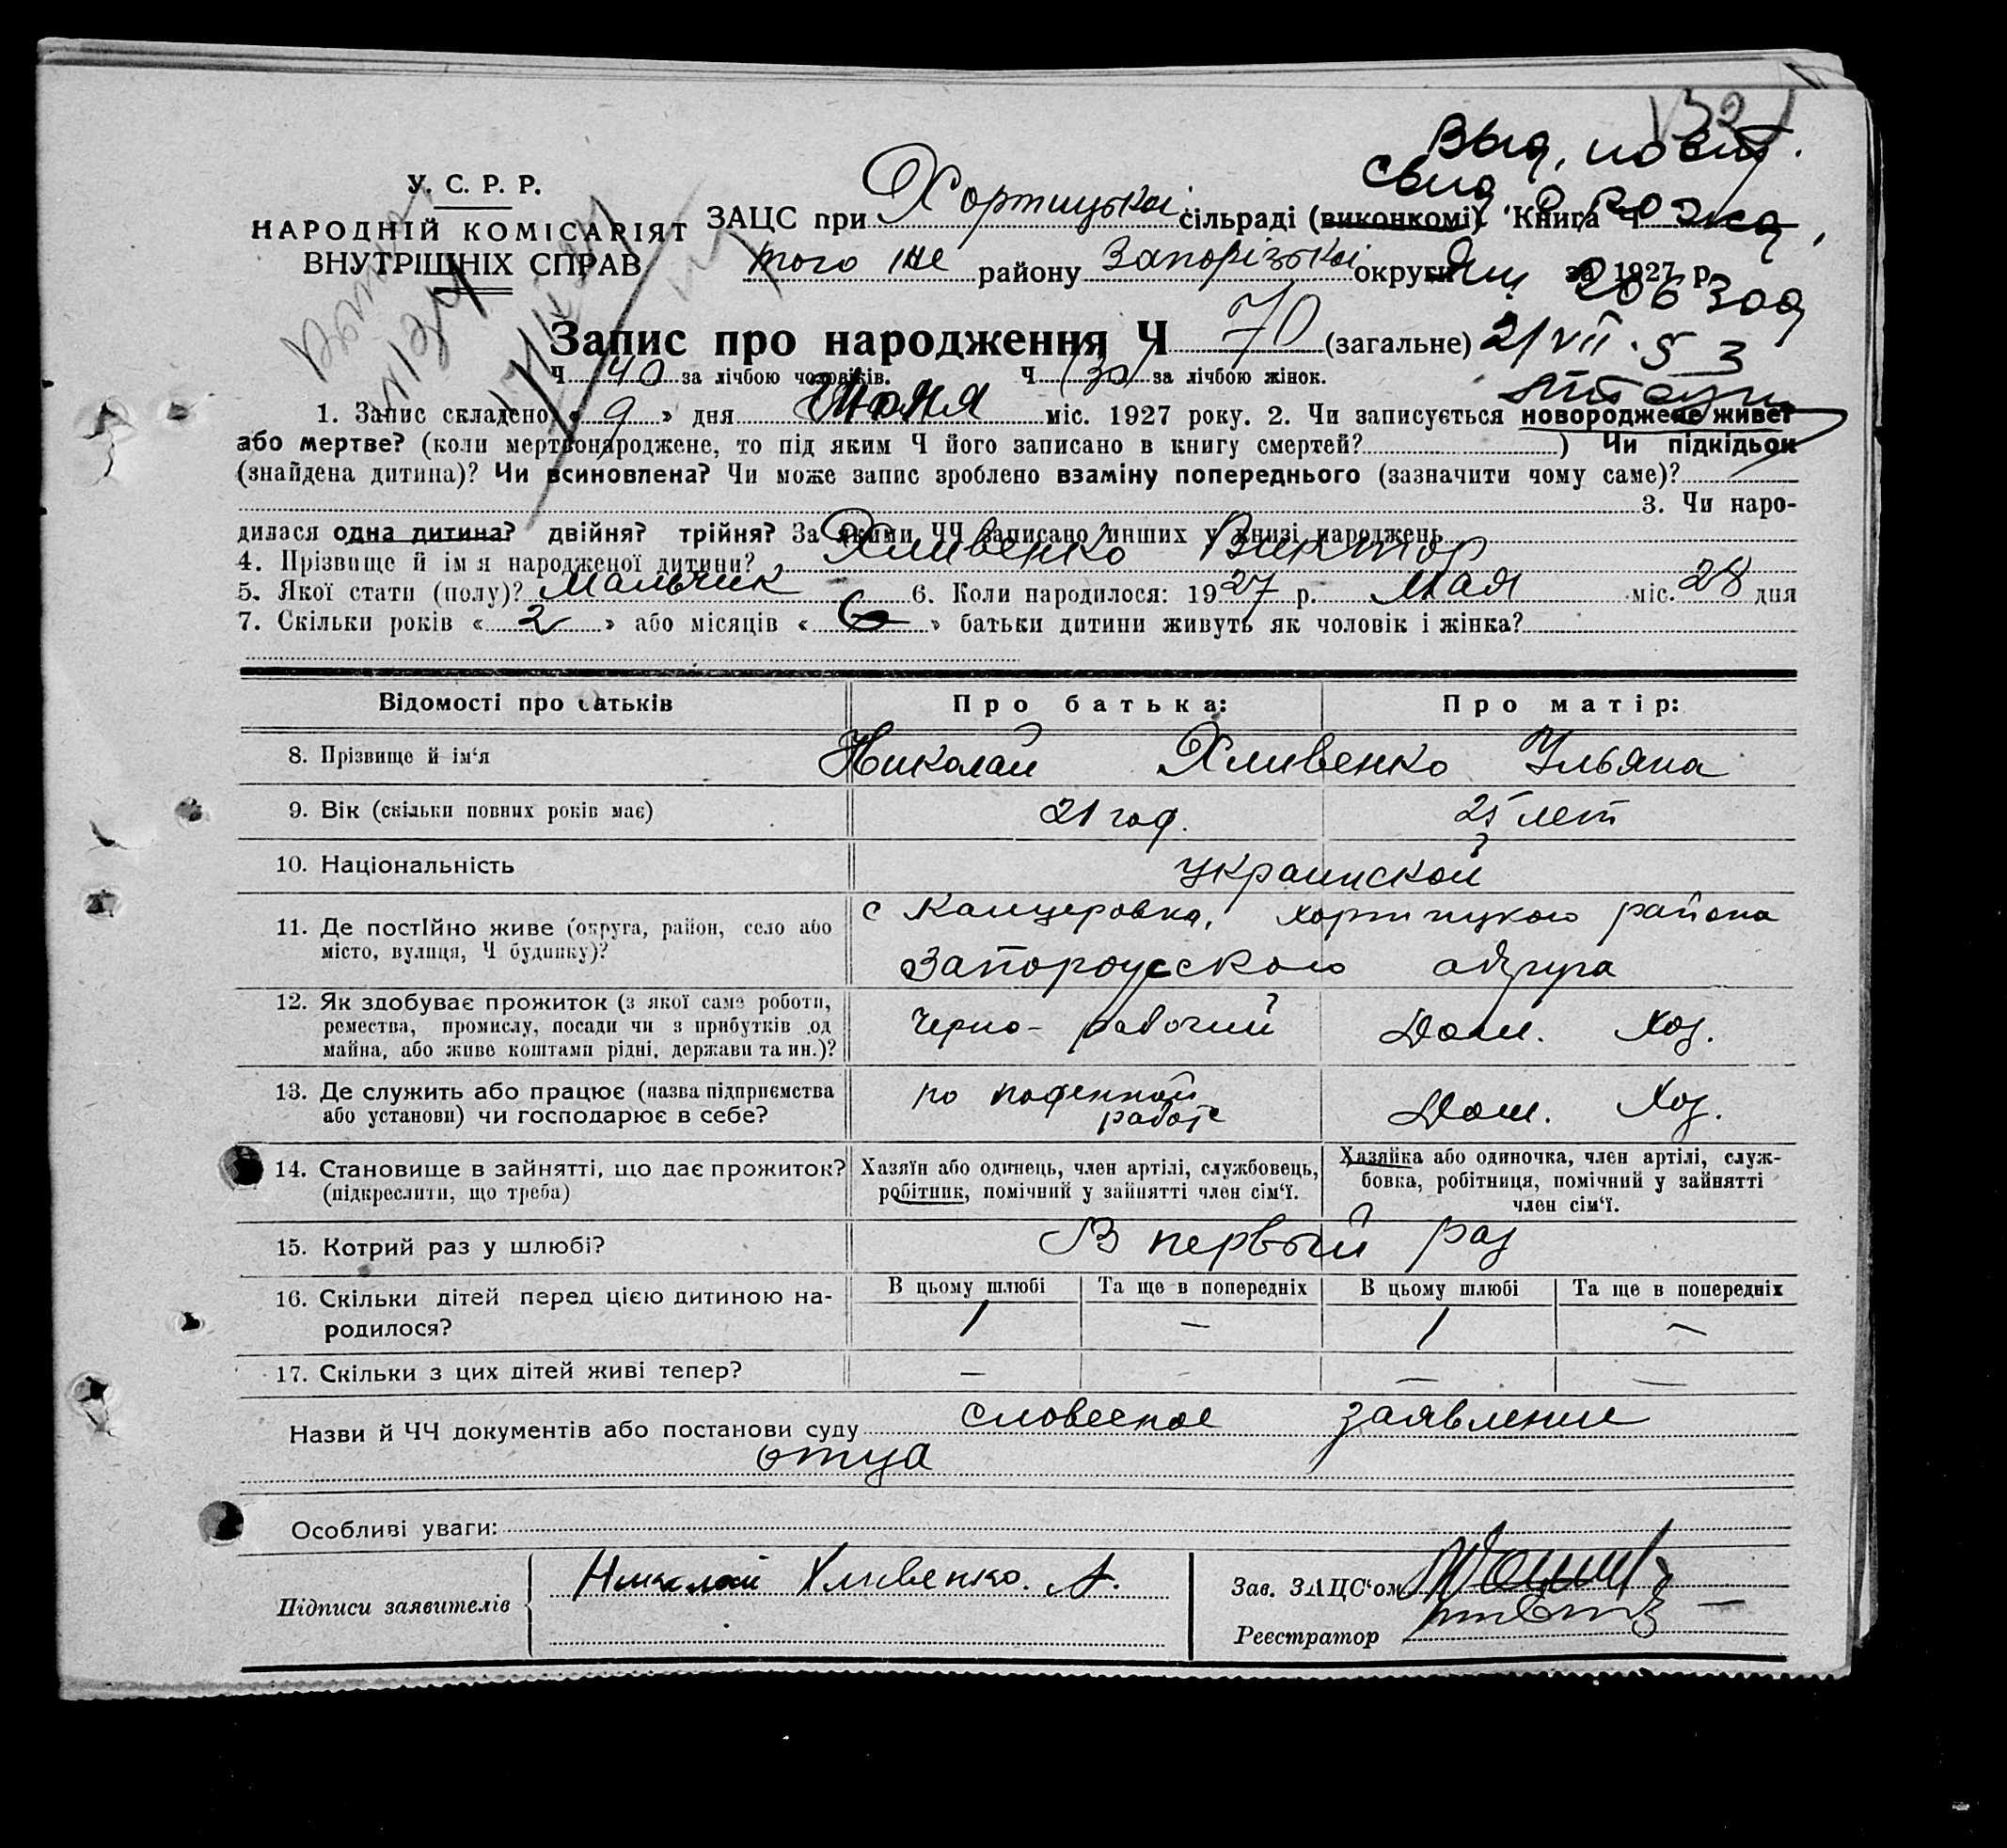 Выд. повт.
свид о рожд.
У. С. Р. Р.
НАРОДНІЙ КОМІСАРІЯТ
ВНУТРІШНІХ СПРАВ
ЗАЦС при Хортицької сільраді (виконкомі). Книга Ч
того же району Запорізької округи за 1927 р.
206300
Запис про народження Ч 70 (загальне)
21/VII·53
Ч 40 за лічбою чоловіків. Ч 30 за лічбою жінок.
1. Запис складено « 9 » дня Июня міс. 1927 року. 2. Чи записується новороджене живе?
або мертве? (коли мертвонароджене, то під яким Ч його записано в книгу смертей? ) Чи підкідьок
(знайдена дитина)? Чи всиновлена? Чи може запис зроблено взаміну попереднього (зазначити чому саме)?
3. Чи наро-
дилася одна дитина? двійня? трійня? За якими ЧЧ записано инших у книзі народжень
4. Прізвище й імя народженої дитини? Хливенко Виктор
5. Якої стати (полу)? Мальчик 6. Коли народилося: 1927 р. Мая міс. 28 дня
7. Скільки років « 2 » або місяців « 6 » батьки дитини живуть як чоловік і жінка?
Відомості про батьків Про батька: Про матір:
8. Прізвище й ім‘я Николай Хливенко Ульяна
9. Вік (скільки повних років має) 21 год. 25 лет
10. Національність украинской
11. Де постійно живе (округа, район, село або с Канцеровка, Хортицкого района
місто, вулиця, Ч будинку)? Запорожского округа
12. Як здобуває прожиток (з якої саме роботи,
ремества, промислу, посади чи з прибутків од Черно-рабочий Дом. Хоз.
майна, або живе коштами рідні, держави та ин.)?
13. Де служить або працює (назва підприємства по поденной
або установи) чи господарює в себе? работе Дом. Хоз.
14. Становище в зайнятті, що дає прожиток? Хазяїн або одинець, член артілі, службовець, Хазяйка або одиночка, член артілі, служ-
(підкреслити, що треба) робітник, помічний у зайнятті член сім‘ї. бовка, робітниця, помічний у зайнятті
член сім‘ї.
15. Котрий раз у шлюбі? В первый раз
16. Скільки дітей перед цією дитиною на- В цьому шлюбі Та ще в попередніх В цьому шлюбі Та ще в попередніх
родилося? 1 — 1 —
17. Скільки з цих дітей живі тепер? — - — —
Назви й ЧЧ документів або постанови суду словесное заявление
отца
Особливі уваги:
Підписи заявителів Николай Хливенко. А.
Зав. ЗАЦС‘ом
Реєстратор